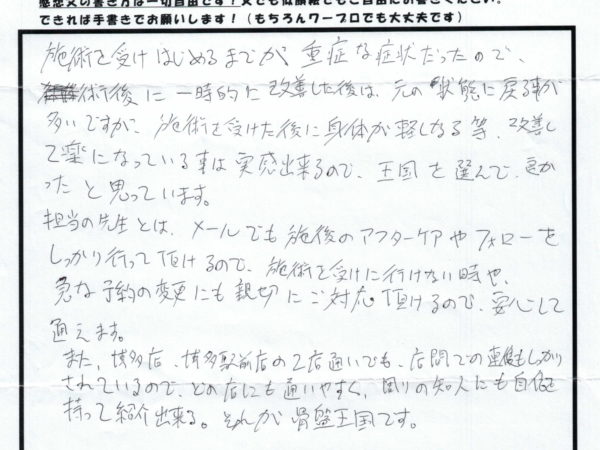 感想文の書き方は一切自由です！文でも似顔絵でもご自由にお書きください。
できれば手書きでお願いします！（もちろんワープロでも大丈夫です）
施術を受けはじめるまでが 重症な症状だったので、
術後に一時的に改善した後は、元の状態に戻る事が
多いですが、施術を受けた後に身体が軽くなる等、改善し
て楽になっている事は実感出来るので、王国を選んで、良か
ったと思っています。
担当の先生とは、メールでも施後のアフターケアやフォローを
しっかり行って頂けるので、施術を受けに行けない時や、
急な予約の変更にも親切にご対応頂けるので、安心して
通えます。
また、博多店、博多駅前店の2店通いでも、店間での連携もしっかり
されているので、どの店にも通いやすく、周りの知人にも自信
持って紹介出来る。それが骨盤王国です。